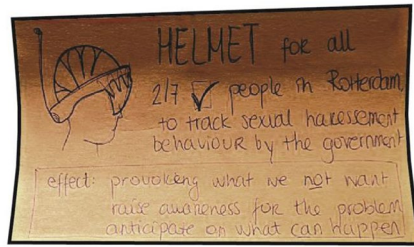 HELMET for all
2/7 people in Rotterdam
to track sexual haressement
behaviour by the government
effect: provokeng what we not want
raise awareness for the problem
anticipate on what can happen